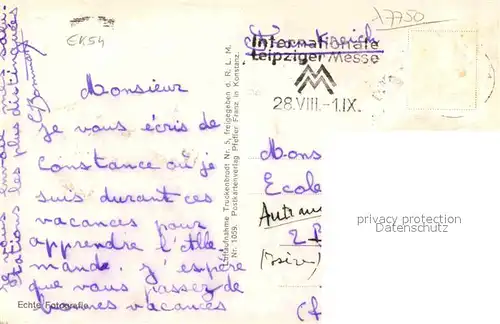 Monsieur
Je vous écris de
Constance où je
suis durant ces
vacances pour
apprendre l'Alle
mande. J'espère
que vous passez de
bonnes vacances
Je vous envoie mes salu-
tations les plus distinguées
EK54
17750
Internationale
Leipziger Messe
28.VIII.-1.IX.
Mons
Ecole
2
(Isère)
(f
Luftaufnahme Truckenbrodt Nr. 5, freigegeben d. R. L. M.
Nr. 1059. Postkartenverlag Pfeffer Franz in Konstanz.
Echte Fotografie
privacy protection
Datenschutz